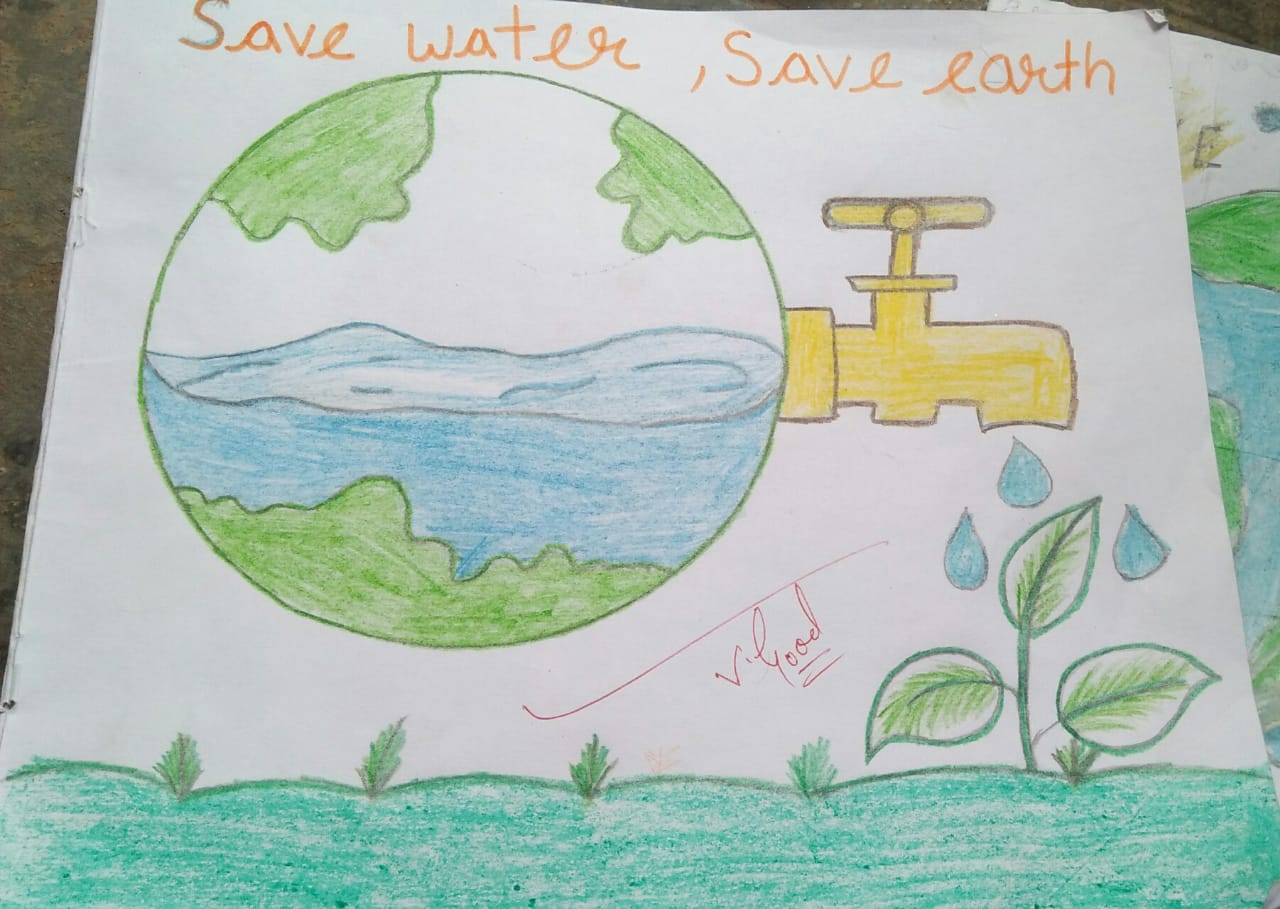 Save water, Save earth
E
V. Good